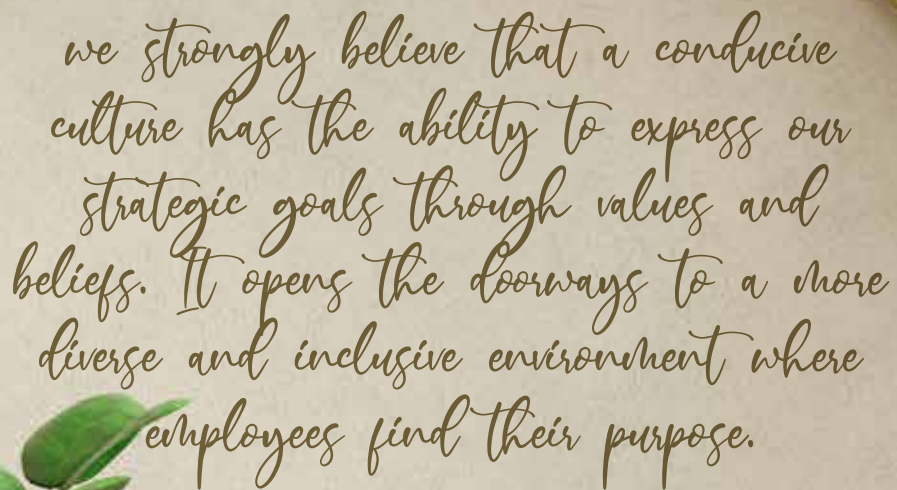 we strongly believe that a conducive
culture has the ability to express our
strategic goals through values and
beliefs. It opens the doorways to a more
diverse and inclusive environment where
employees find their purpose.